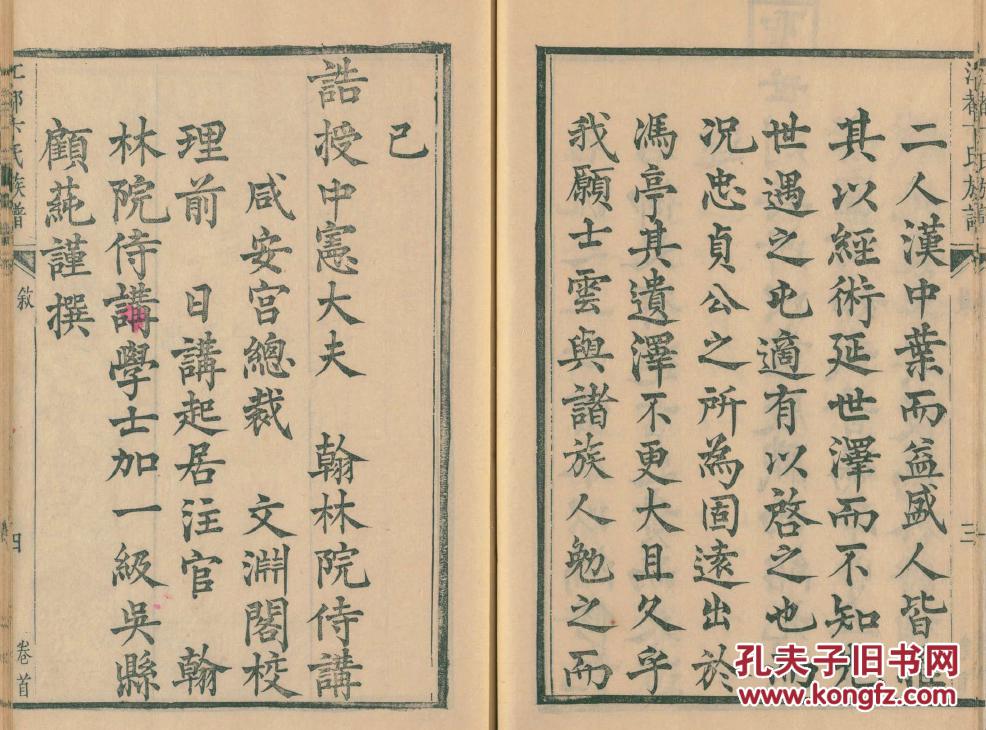 二人漢中葉而益盛人皆
其以經術延世澤而不知
世遇之屯適有以啓之也而
況忠貞公之所為固遠出於
馮亭其遺澤不更大且久乎
我願士雲與諸族人勉之而
三
已
誥授中憲大夫 翰林院侍講
咸安宮總裁 文淵閣校
理前 日講起居注官 翰
林院侍講學士加一級吳縣
顧蒓謹撰
氏族譜 敘 四 卷首
孔夫子旧书网
www.kongfz.com